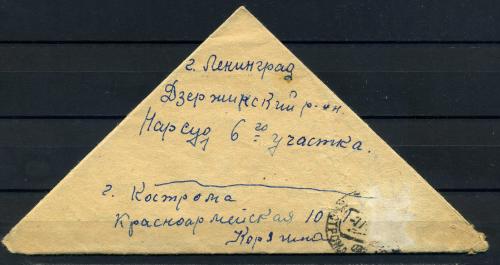 г. Ленинград
Дзержинский р-он.
Нарсуд 6го участка.
г. Кострома
Красноармейская 10